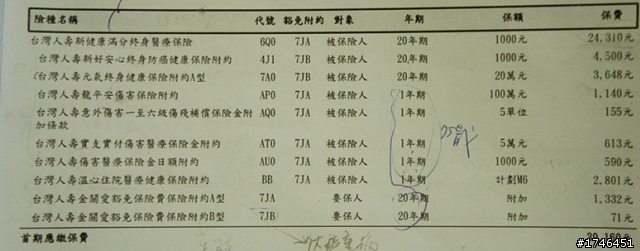 險種名稱 代號 豁免附約 對象 年期 保額 保費
台灣人壽新健康滿分終身醫療保險 6Q0 7JA 被保險人 20年期 1000元 24,310元
台灣人壽新好安心終身防癌健康保險附約 4J1 7JB 被保險人 20年期 1000元 4,500元
台灣人壽元氣終身健康保險附約A型 7A0 7JB 被保險人 20年期 20萬元 3,648元
台灣人壽龍平安傷害保險附約 AP0 7JA 被保險人 1年期 100萬元 1,140元
台灣人壽意外傷害一至六級傷殘補償保險金附 AQ0 7JA 被保險人 1年期 5單位 155元
加條款
台灣人壽實支實付傷害醫療保險金附約 AT0 7JA 被保險人 1年期 5萬元 613元
台灣人壽傷害醫療保險金日額附約 AU0 7JA 被保險人 1年期 1000元 590元
台灣人壽溫心住院醫療健康保險附約 BB 7JA 被保險人 1年期 計劃M6 2,801元
台灣人壽金關愛豁免保險費保險附約A型 7JA 要保人 20年期 附加 1,332元
台灣人壽金關愛豁免保險費保險附約B型 7JB 要保人 20年期 附加 71元
首期應繳保費 39,160元
#1746451